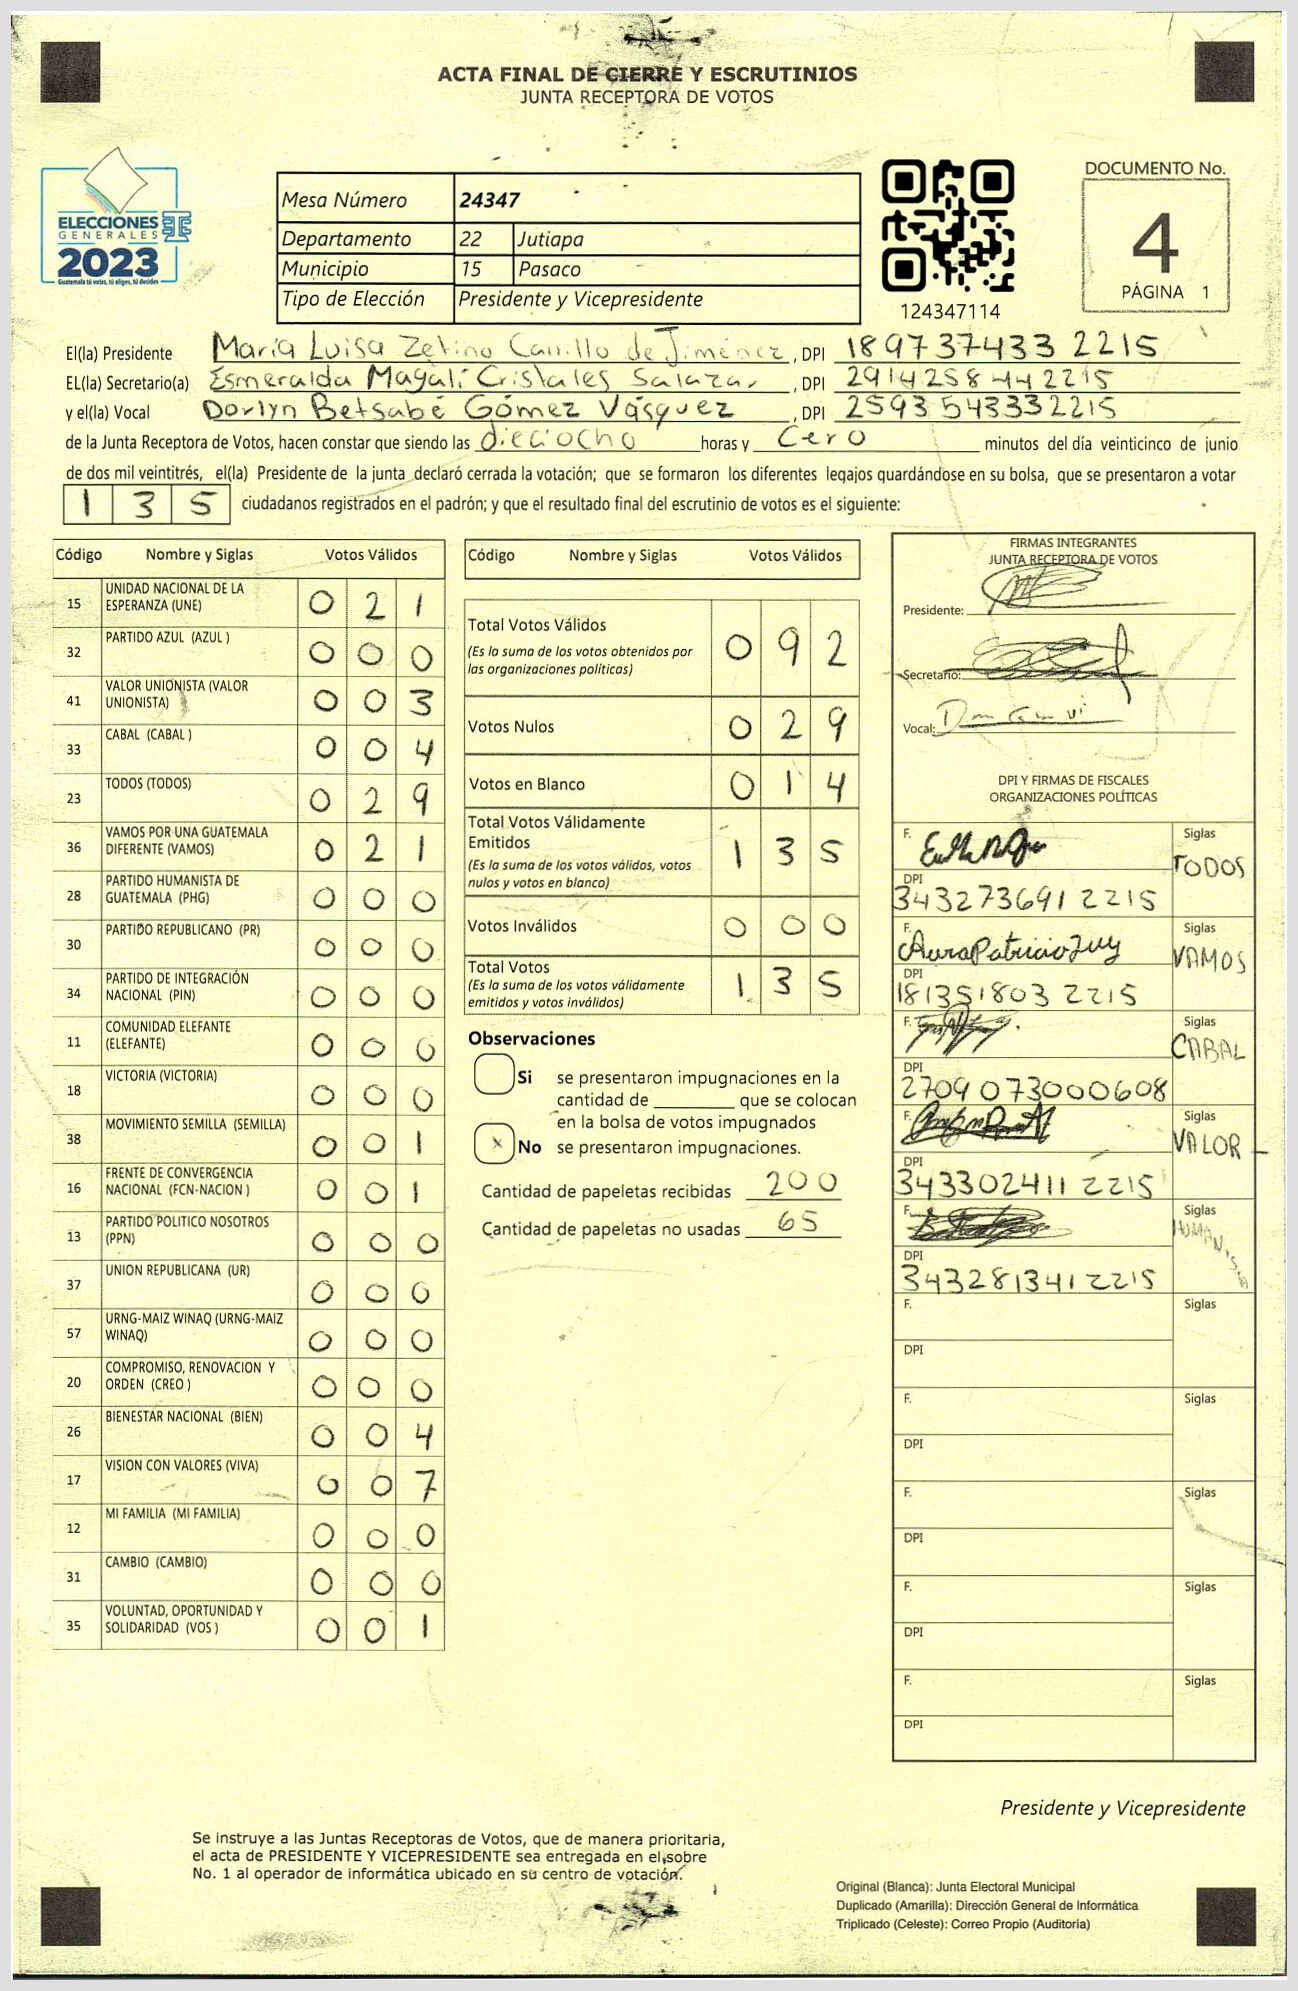 ACTA FINAL DE CIERRE Y ESCRUTINIOS
JUNTA RECEPTORA DE VOTOS
ELECCIONES
GENERALES
2023
Guatemala tú votas, tú eliges, tú decides
Mesa Número 24347
Departamento 22 Jutiapa
Municipio 15 Pasaco
Tipo de Elección Presidente y Vicepresidente
124347114
DOCUMENTO No.
4
PÁGINA 1
El(la) Presidente María Luisa Zetino Carrillo de Jiménez, DPI 189737433 2215
EL(la) Secretario(a) Esmeralda Magalí Cristales Salazar, DPI 2914258442215
y el(la) Vocal Dorlyn Betsabé Gómez Vásquez, DPI 2593543332215
de la Junta Receptora de Votos, hacen constar que siendo las dieciocho horas y Cero minutos del día veinticinco de junio
de dos mil veintitrés, el(la) Presidente de la junta declaró cerrada la votación; que se formaron los diferentes legajos guardándose en su bolsa, que se presentaron a votar
1 3 5 ciudadanos registrados en el padrón; y que el resultado final del escrutinio de votos es el siguiente:
Código Nombre y Siglas Votos Válidos
15 UNIDAD NACIONAL DE LA
ESPERANZA (UNE) 0 2 1
32 PARTIDO AZUL (AZUL ) 0 0 0
41 VALOR UNIONISTA (VALOR
UNIONISTA) 0 0 3
33 CABAL (CABAL ) 0 0 4
23 TODOS (TODOS) 0 2 9
36 VAMOS POR UNA GUATEMALA
DIFERENTE (VAMOS) 0 2 1
28 PARTIDO HUMANISTA DE
GUATEMALA (PHG) 0 0 0
30 PARTIDO REPUBLICANO (PR) 0 0 0
34 PARTIDO DE INTEGRACIÓN
NACIONAL (PIN) 0 0 0
11 COMUNIDAD ELEFANTE
(ELEFANTE) 0 0 0
18 VICTORIA (VICTORIA) 0 0 0
38 MOVIMIENTO SEMILLA (SEMILLA) 0 0 1
16 FRENTE DE CONVERGENCIA
NACIONAL (FCN-NACION ) 0 0 1
13 PARTIDO POLITICO NOSOTROS
(PPN) 0 0 0
37 UNION REPUBLICANA (UR) 0 0 0
57 URNG-MAIZ WINAQ (URNG-MAIZ
WINAQ) 0 0 0
20 COMPROMISO, RENOVACION Y
ORDEN (CREO ) 0 0 0
26 BIENESTAR NACIONAL (BIEN) 0 0 4
17 VISION CON VALORES (VIVA) 0 0 7
12 MI FAMILIA (MI FAMILIA) 0 0 0
31 CAMBIO (CAMBIO) 0 0 0
35 VOLUNTAD, OPORTUNIDAD Y
SOLIDARIDAD (VOS ) 0 0 1
Código Nombre y Siglas Votos Válidos
Total Votos Válidos 0 9 2
(Es la suma de los votos obtenidos por
las organizaciones políticas)
Votos Nulos 0 2 9
Votos en Blanco 0 1 4
Total Votos Válidamente
Emitidos 1 3 5
(Es la suma de los votos válidos, votos
nulos y votos en blanco)
Votos Inválidos 0 0 0
Total Votos 1 3 5
(Es la suma de los votos válidamente
emitidos y votos inválidos)
Observaciones
Si se presentaron impugnaciones en la
cantidad de ________ que se colocan
en la bolsa de votos impugnados
x No se presentaron impugnaciones.
Cantidad de papeletas recibidas 200
Cantidad de papeletas no usadas 65
FIRMAS INTEGRANTES
JUNTA RECEPTORA DE VOTOS
Presidente:
Secretario:
Vocal:
DPI Y FIRMAS DE FISCALES
ORGANIZACIONES POLÍTICAS
F. Siglas
TODOS
DPI
343273691 2215
F. Aura Patricia Siglas
VAMOS
DPI
181351803 2215
F. Siglas
CABAL
DPI
2709073000608
F. Siglas
VALOR
DPI
343302411 2215
F. Siglas
HUMANISTA
DPI
343281341 2215
F. Siglas
DPI
F. Siglas
DPI
F. Siglas
DPI
F. Siglas
DPI
F. Siglas
DPI
Presidente y Vicepresidente
Se instruye a las Juntas Receptoras de Votos, que de manera prioritaria,
el acta de PRESIDENTE Y VICEPRESIDENTE sea entregada en el sobre
No. 1 al operador de informática ubicado en su centro de votación.
Original (Blanca): Junta Electoral Municipal
Duplicado (Amarilla): Dirección General de Informática
Triplicado (Celeste): Correo Propio (Auditoría)